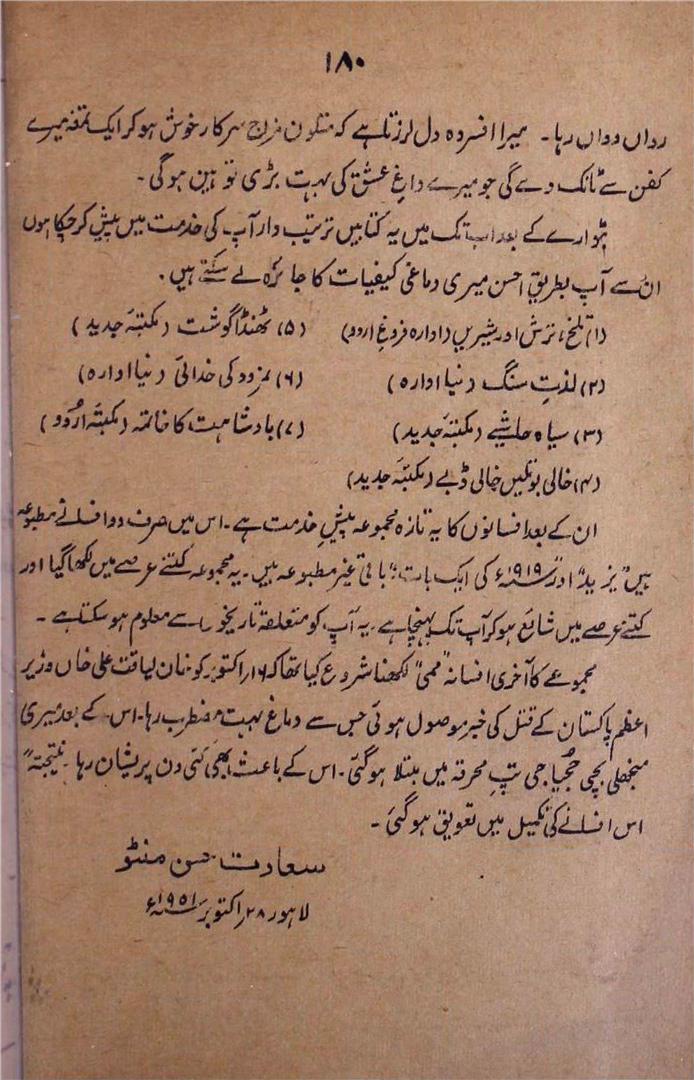 ۱۸۰
رواں دواں رہا۔ میرا افسردہ دل لرزتا ہے کہ متلون مزاج سرکار خوش ہو کر ایک تمغہ میرے
کفن سے ٹانک دے گی جو میرے داغِ عشق کی بہت بڑی توہین ہو گی۔
بٹوارے کے بعد اب تک میں یہ کتابیں ترتیب وار آپ کی خدمت میں پیش کر چکا ہوں
ان سے آپ بطریقِ احسن میری دماغی کیفیات کا جائزہ لے سکتے ہیں۔
(۱) تلخ، ترش اور شیریں (ادارہ فروغِ اردو) (۵) ٹھنڈا گوشت (مکتبۂ جدید)
(۲) لذتِ سنگ (نیا ادارہ) (۶) نمرود کی خدائی (نیا ادارہ)
(۳) سیاہ حاشیے (مکتبۂ جدید) (۷) بادشاہت کا خاتمہ (مکتبۂ اُردو)
(۴) خالی بوتلیں خالی ڈبے (مکتبۂ جدید)
ان کے بعد افسانوں کا یہ تازہ مجموعہ پیشِ خدمت ہے۔ اس میں صرف دو افسانے مطبوعہ
ہیں "یزید" اور "۱۹۱۹ء کی ایک بات" باقی غیر مطبوعہ ہیں۔ یہ مجموعہ کتنے عرصے میں لکھا گیا اور
کتنے عرصے میں شائع ہو کر آپ تک پہنچا ہے۔ یہ آپ کو متعلقہ تاریخوں سے معلوم ہو سکتا ہے۔
مجموعے کا آخری افسانہ "ممی" لکھنا شروع کیا تھا کہ ۱۶ اکتوبر کو خان لیاقت علی خاں وزیر
اعظم پاکستان کے قتل کی خبر موصول ہوئی جس سے دماغ بہت مضطرب رہا۔ اس کے بعد میری
منجھلی بچی جُجیا جی تپِ محرقہ میں مبتلا ہو گئی۔ اس کے باعث بھی کئی دن پریشان رہا۔ نتیجتہً
اس افسانے کی تکمیل میں تعویق ہو گئی۔
سعادت حسن منٹو
لاہور ۲۸ اکتوبر ۱۹۵۱ء